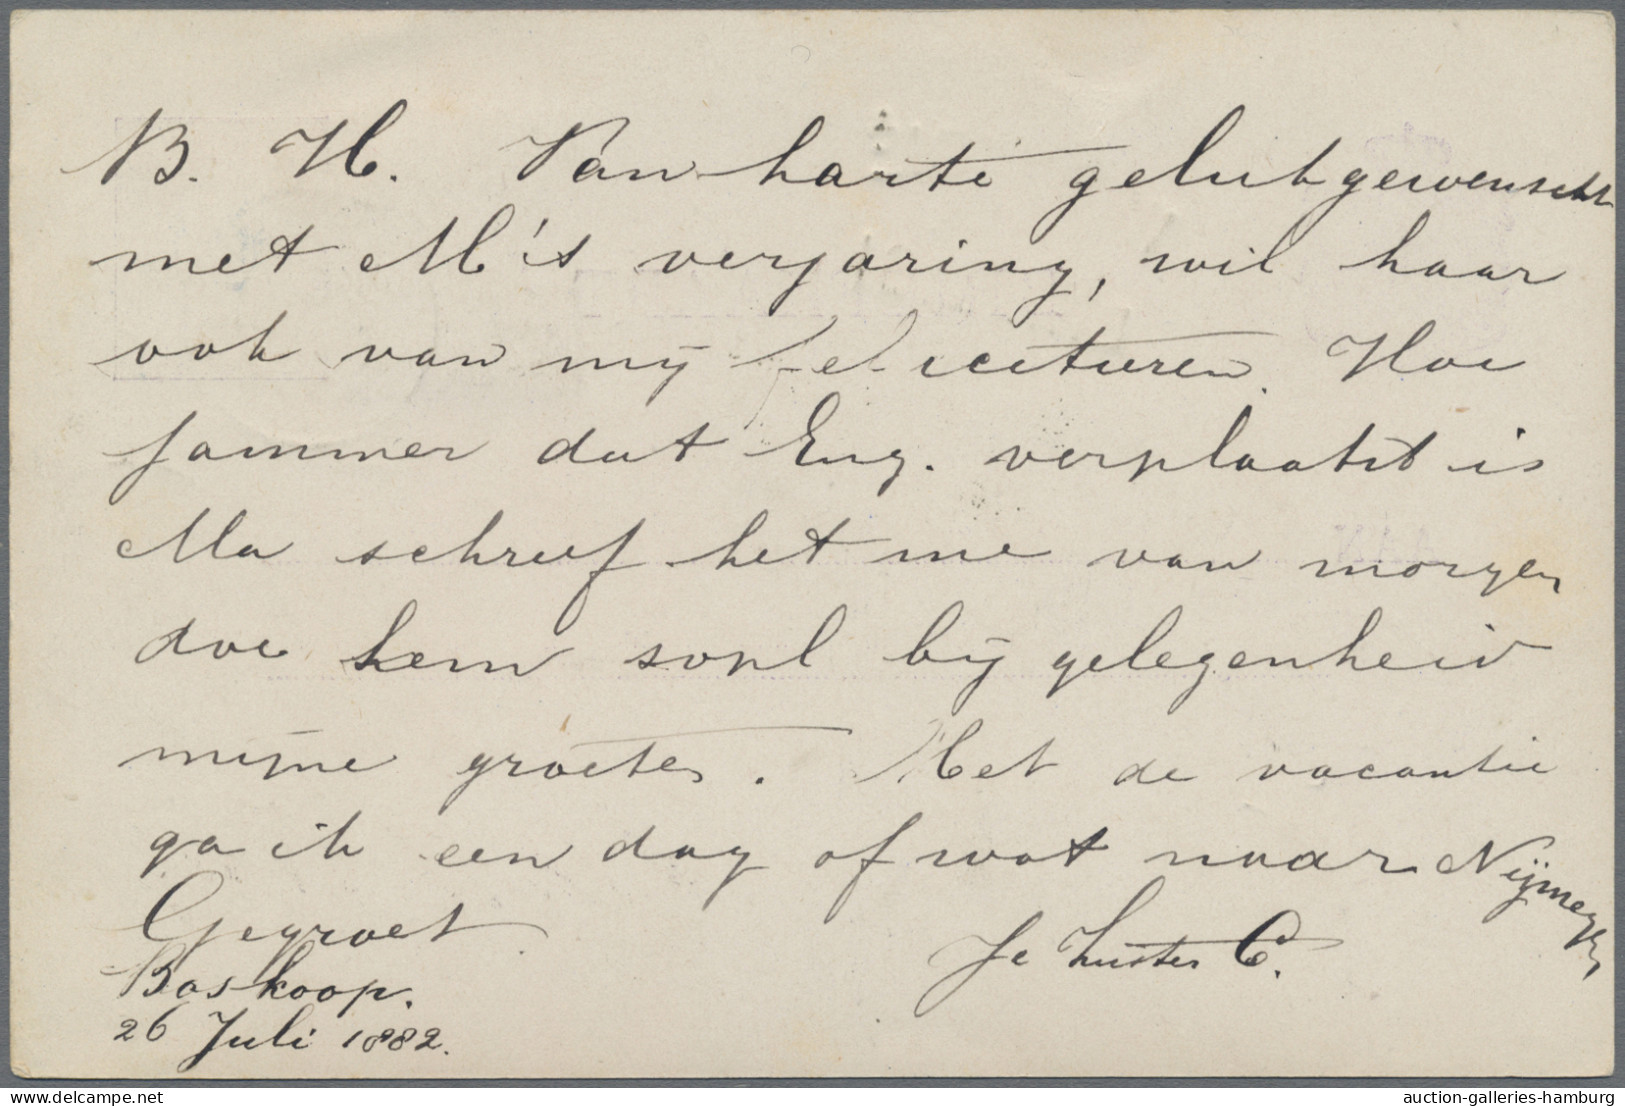 B. H. Van harte gelukgewenscht
met M's verjaring, wil haar
ook van mij feliciteeren. Hoe
jammer dat Eug. verplaatst is
Ma schreef het me van morgen
doe hem s.v.pl bij gelegenheid
mijne groeten. Met de vacantie
ga ik een dag of wat naar Nijmegen
Gegroet Je Zuster C.
Boskoop.
26 Juli 1882.
delcampe.net
auction-galleries-hamburg